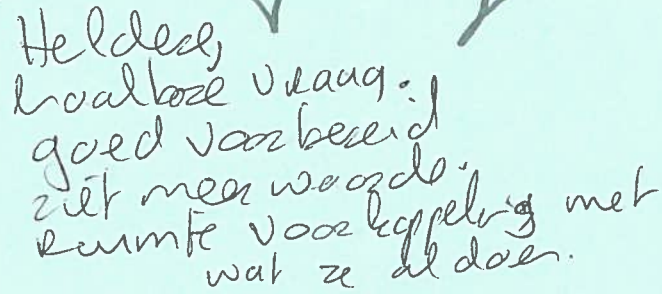 Heldere,
haalbare vraag.
goed voorbereid
ziet meerwaarde.
ruimte voor koppeling met
wat ze al doen.